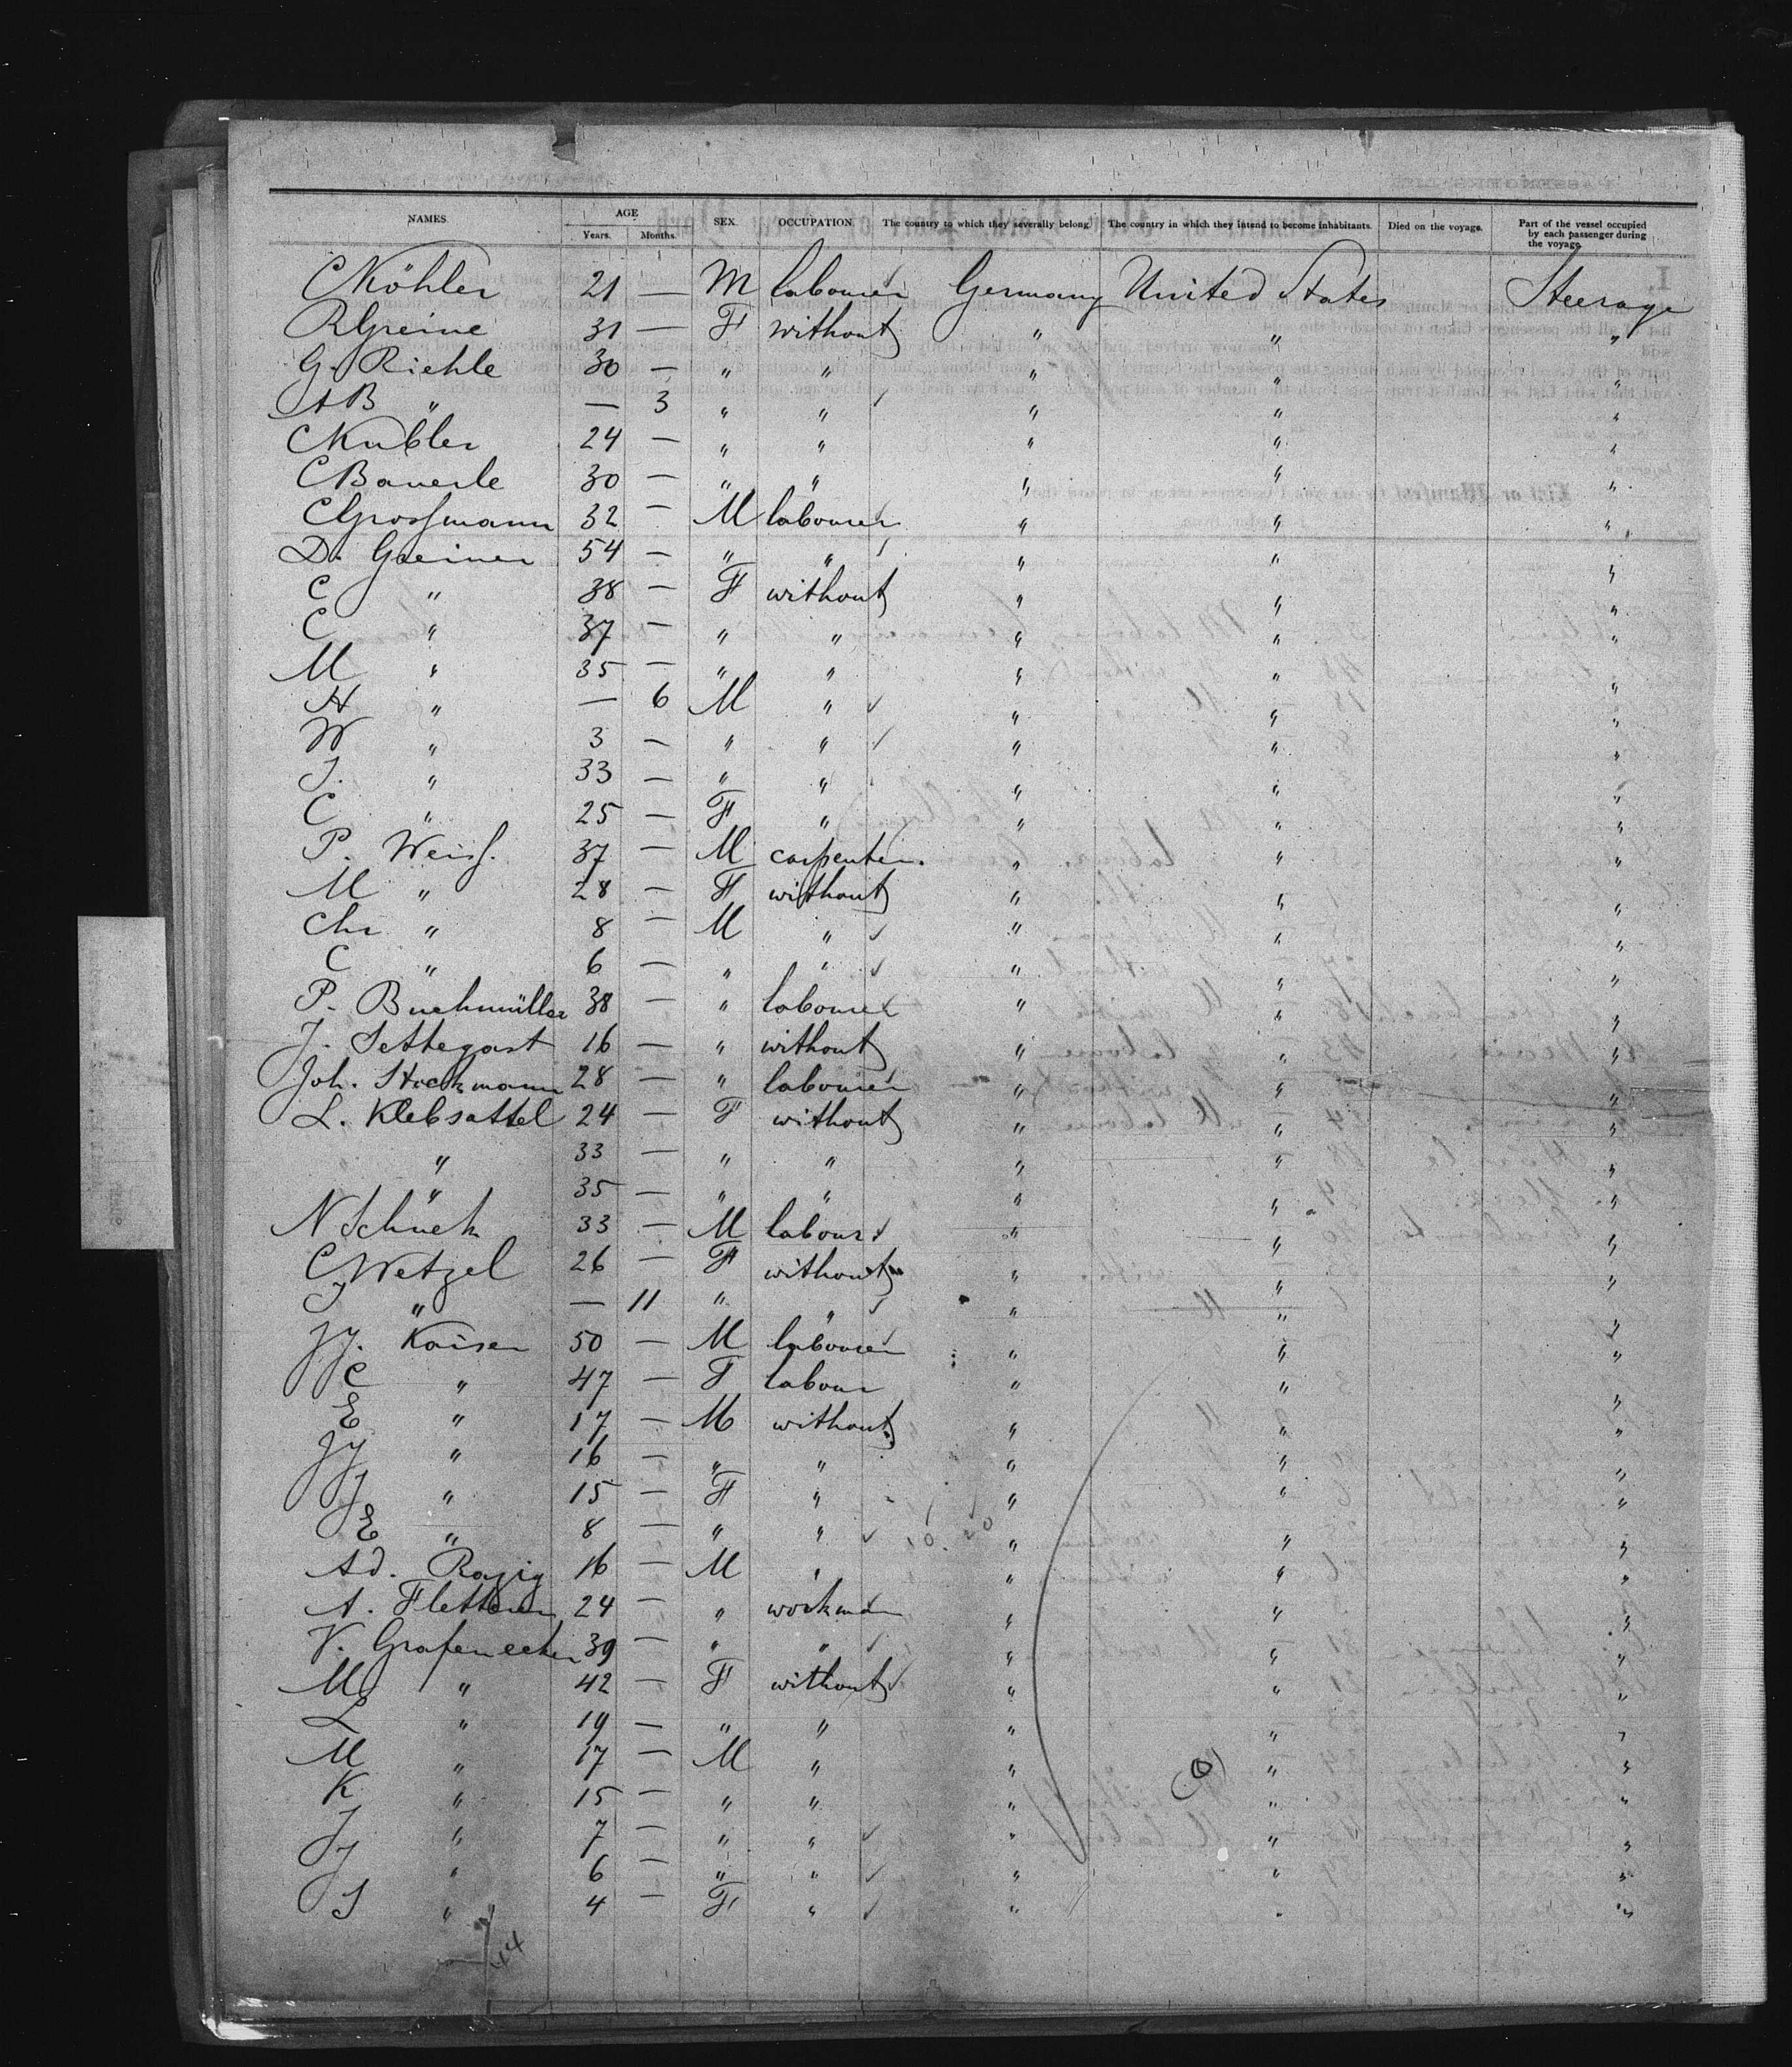 NAMES. AGE SEX. OCCUPATION. The country to which they severally belong. The country in which they intend to become inhabitants. Died on the voyage. Part of the vessel occupied by each passenger during the voyage.
Years. Months.
C Köhler 21 — M labourer Germany United States Steerage
R Greine 31 — F without " " "
G. Riehle 30 — " " " " "
AB " — 3 " " " " "
C Kubler 24 — " " " " "
C Bauerle 30 — " " " " "
C Grossmann 32 — M labourer " " "
D. Greiner 54 — " " " " "
C " 38 — F without " " "
C " 37 — " " " " "
M " 35 — " " " " "
H " — 6 M " " " "
W " 3 — " " " " "
J. " 33 — " " " " "
C " 25 — F " " " "
P. Weiss. 37 — M carpenter. " " "
M " 28 — F without " " "
Chr " 8 — M " " " "
C " 6 — " " " " "
P. Buchmüller 38 — " labourer " " "
J. Settegast 16 — " without " " "
Joh. Stockmann 28 — " labourer " " "
L. Klebsattel 24 — F without " " "
" 33 — " " " " "
" 35 — " " " " "
N Schuck 33 — M labour " " "
C Wetzel 26 — F without " " "
J " — 11 " " " " "
JJ. Kaiser 50 — M labourer " " "
C " 47 — F labour " " "
E " 17 — M without " " "
JJ " 16 — " " " " "
J " 15 — F " " " "
E " 8 — " " " " "
Ad. 16 — M " " " "
A. Fletterer 24 — " workman " " "
V. Grafenecker 39 — " " " " "
M " 42 — F without " " "
L " 19 — " " " " "
M " 17 — M " " " "
K " 15 — " " " " "
J " 7 — " " " " "
J " 6 — " " " " "
S " 4 — F " " " "
44